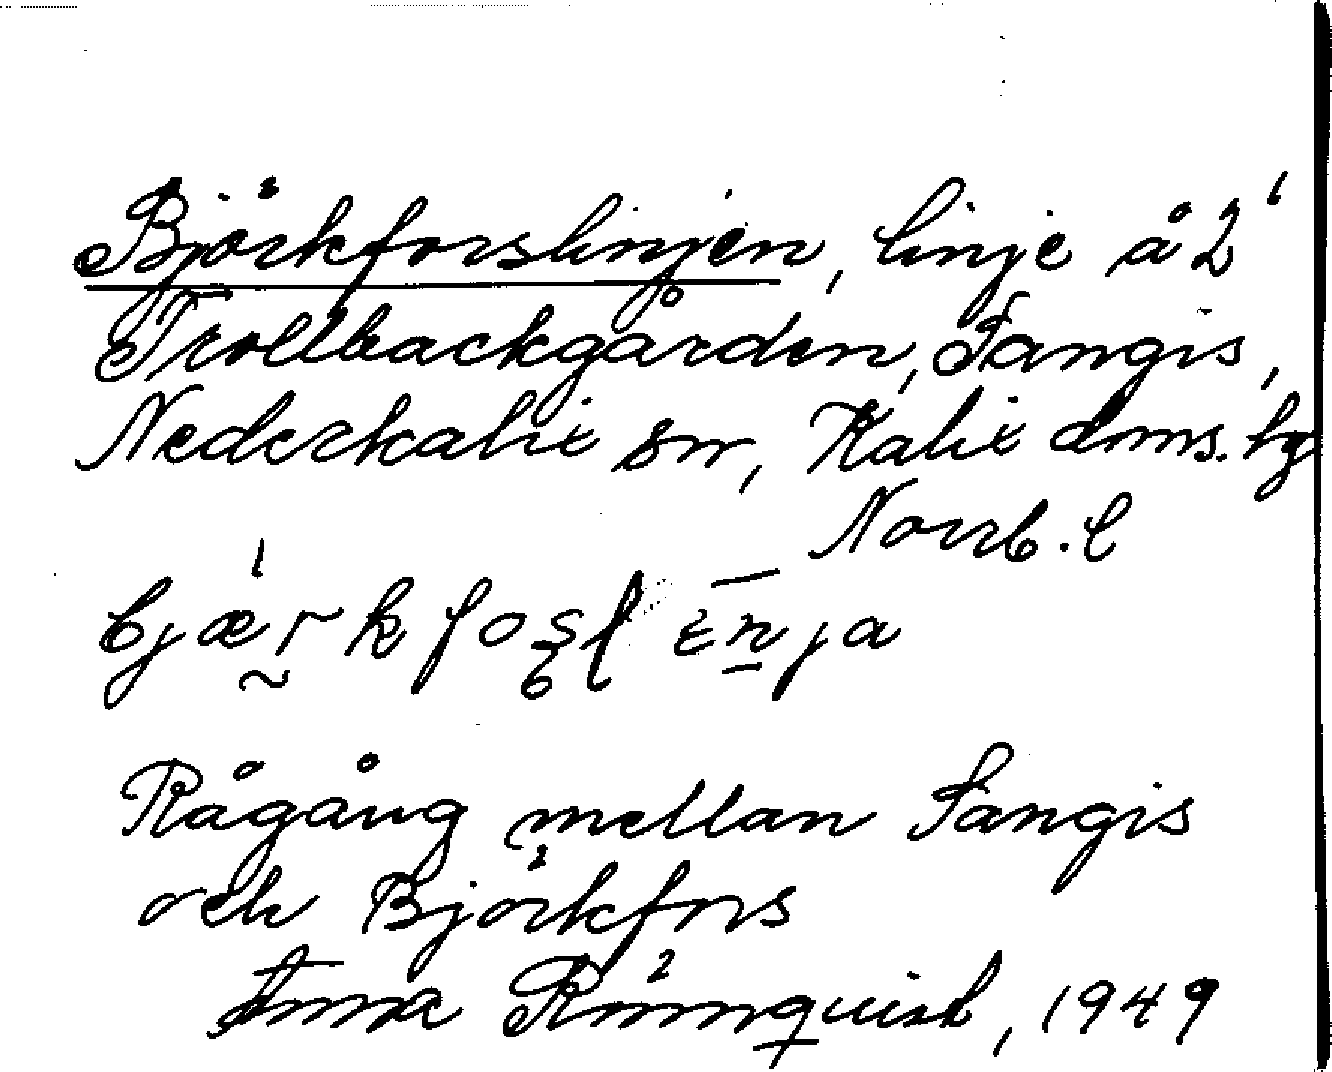 Björkforslinjen, linje å 2¹
Trollbackgården, Sangis,
Nederkalix sn, Kalix doms. hg
Norrb. l
bjæ̰rkfosl ɛn̲ja
Rågång mellan Sangis
och Björkfors
Anna Rönnquist, 1949